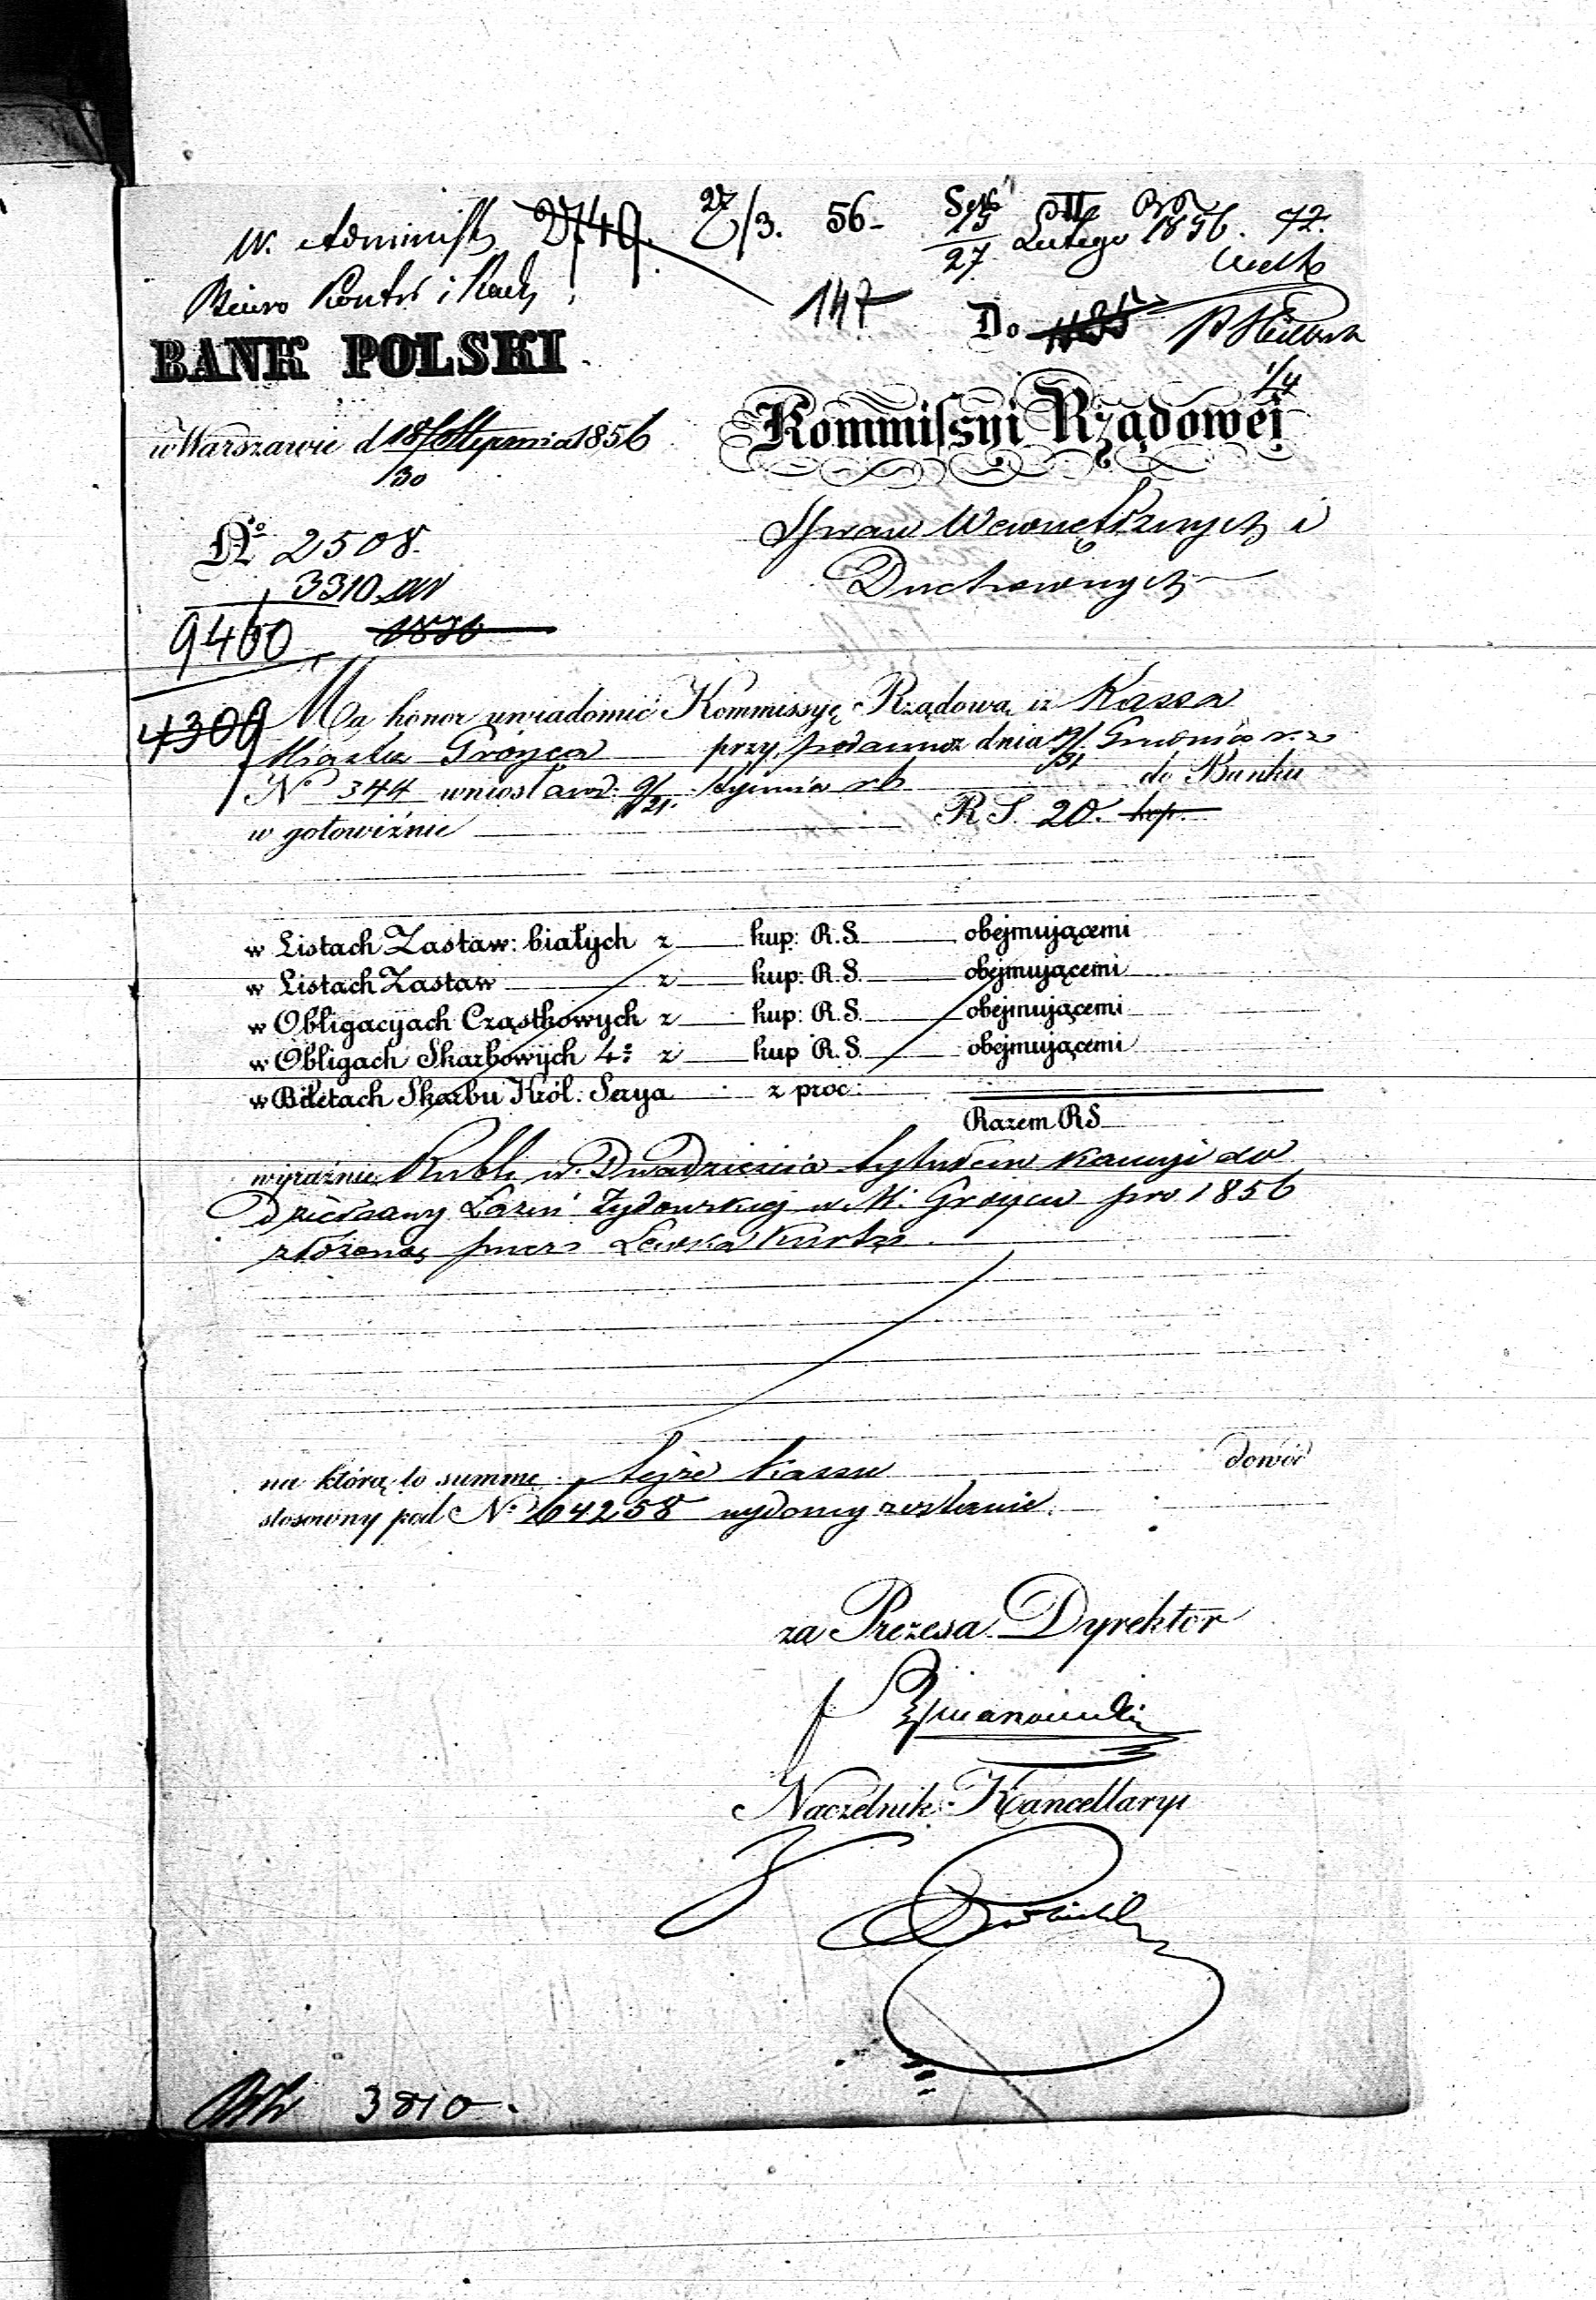 W. Administr. 2749. 27/3. 56- Sek II
15/27 Lutego 1856. 72.
Biuro Kontr i Rach 147
BANK POLSKI
Do
1/4
Kommissyi Rządowej
w Warszawie d 18/30 Stycznia 1856
Spraw Wewnętrznych i
Duchownych
No 2508.
3310
9460 1856
4309
Ma honor uwiadomić Kommissyę Rządową iż Kassa
Miasta Grójca przy podaniu z dnia 19/31 Grudnia r. z
No 344 wniosła w d. 9/21. Stycznia r b do Banku
w gotowiźnie R S. 20. kop.
w Listach Zastaw: białych z kup: R.S. obejmującemi
w Listach Zastaw z kup: R.S. obejmującemi
w Obligacyach Cząstkowych z kup: R.S. obejmującemi
w Obligach Skarbowych 4: z kup R.S. obejmującemi
w Biletach Skarbu Król: Serya z proc:
Razem RS
wyraźnie Rubli sr. Dwadzieścia tytułem kaucyi do
Dzierżawy Łazni Żydowskiej w M. Grójcu pro 1856
złożoną przez Lewka
na którą to summę tejże Kassie dowód
stosowny pod No 64258 wydany zostanie.
za Prezesa Dyrektor
Naczelnik Kancellaryi
3810.